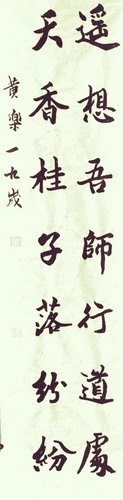 遥想吾師行道處
天香桂子落紛紛
黄樂一九歲